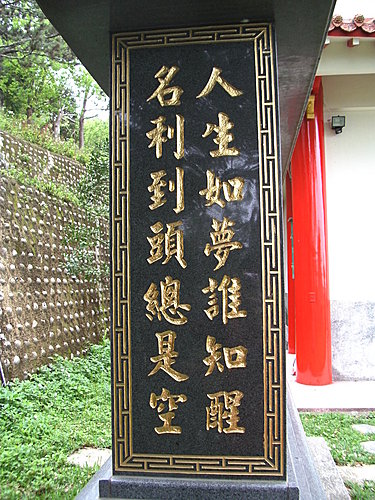 人生如夢誰知醒
名利到頭總是空